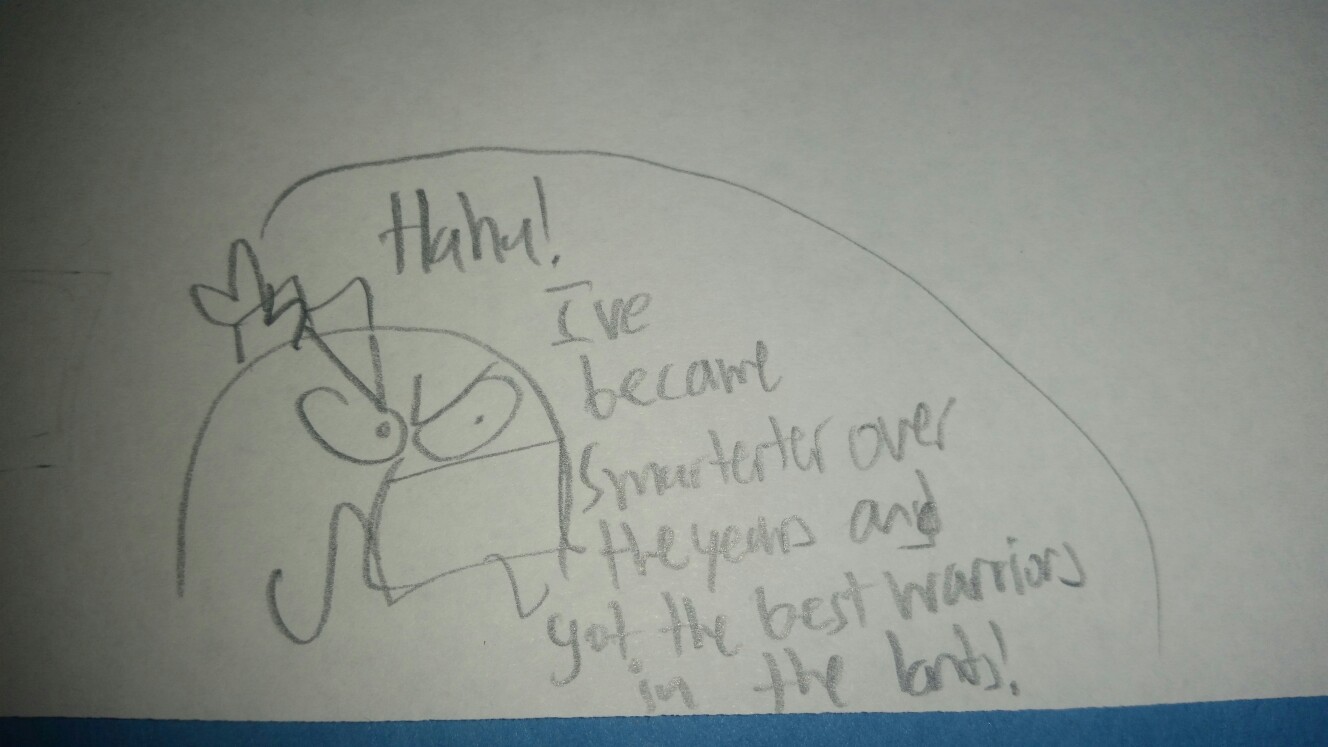 Haha!
I've
became
smarterter over
the years and
got the best warriors
in the lands!